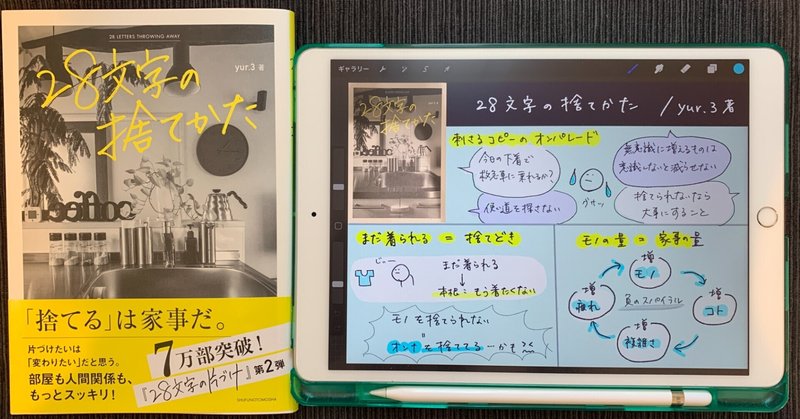 28 LETTERS THROWING AWAY
yur.3 著
28文字の
捨てかた
coffee
「捨てる」は家事だ。
片づけたいは
「変わりたい」だと思う。
部屋も人間関係も、
もっとスッキリ！
7万部突破！
『28文字の片づけ』第2弾
SHUFUNOTOMOSHA
ギャラリー
28文字の
捨てかた
28文字の捨てかた / yur.3 著
刺さるコピーのオンパレード
今日の下着で
救急車に乗れるか？
使い道を探さない
グサッ
無意識に増えるものは
意識しないと減らせない
捨てられないなら
大事にすること
まだ着られる = 捨てどき
じー
まだ着られる
↓
本音：もう着たくない
モノを捨てられない
=
オンナを捨ててる…かも
モノの量 = 家事の量
増
モノ
増
コト
増
複雑さ
増
疲れ
負のスパイラル